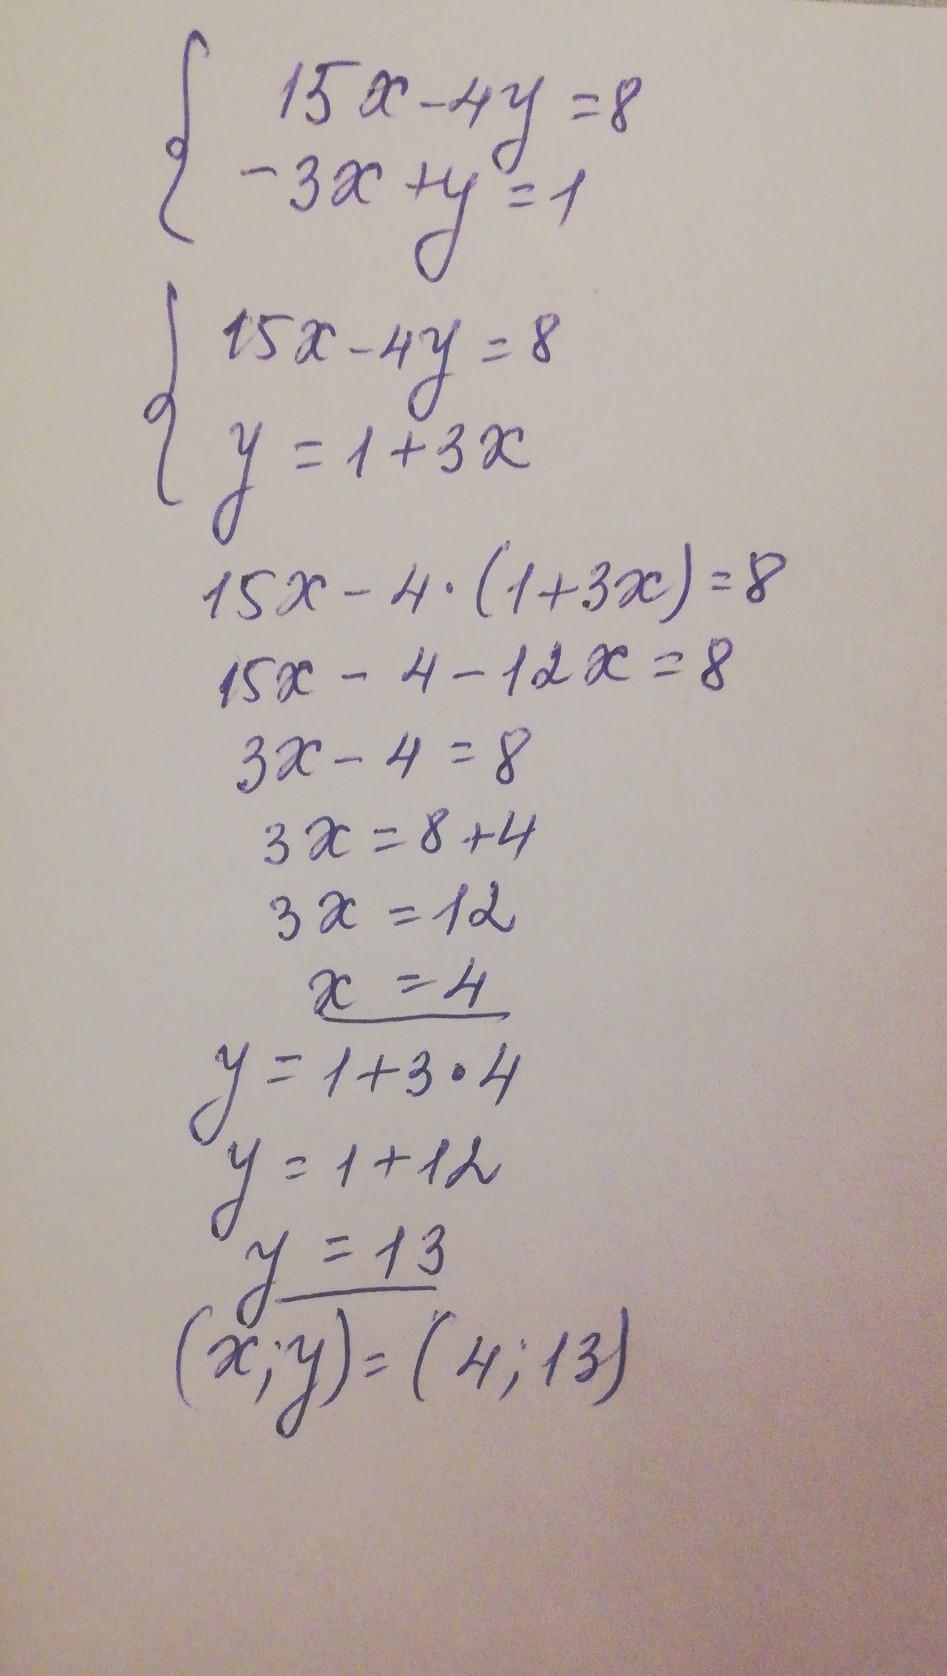 15x-4y=8
-3x+y=1
15x-4y=8
y=1+3x
15x-4·(1+3x)=8
15x-4-12x=8
3x-4=8
3x=8+4
3x=12
x=4
y=1+3·4
y=1+12
y=13
(x;y)=(4;13)